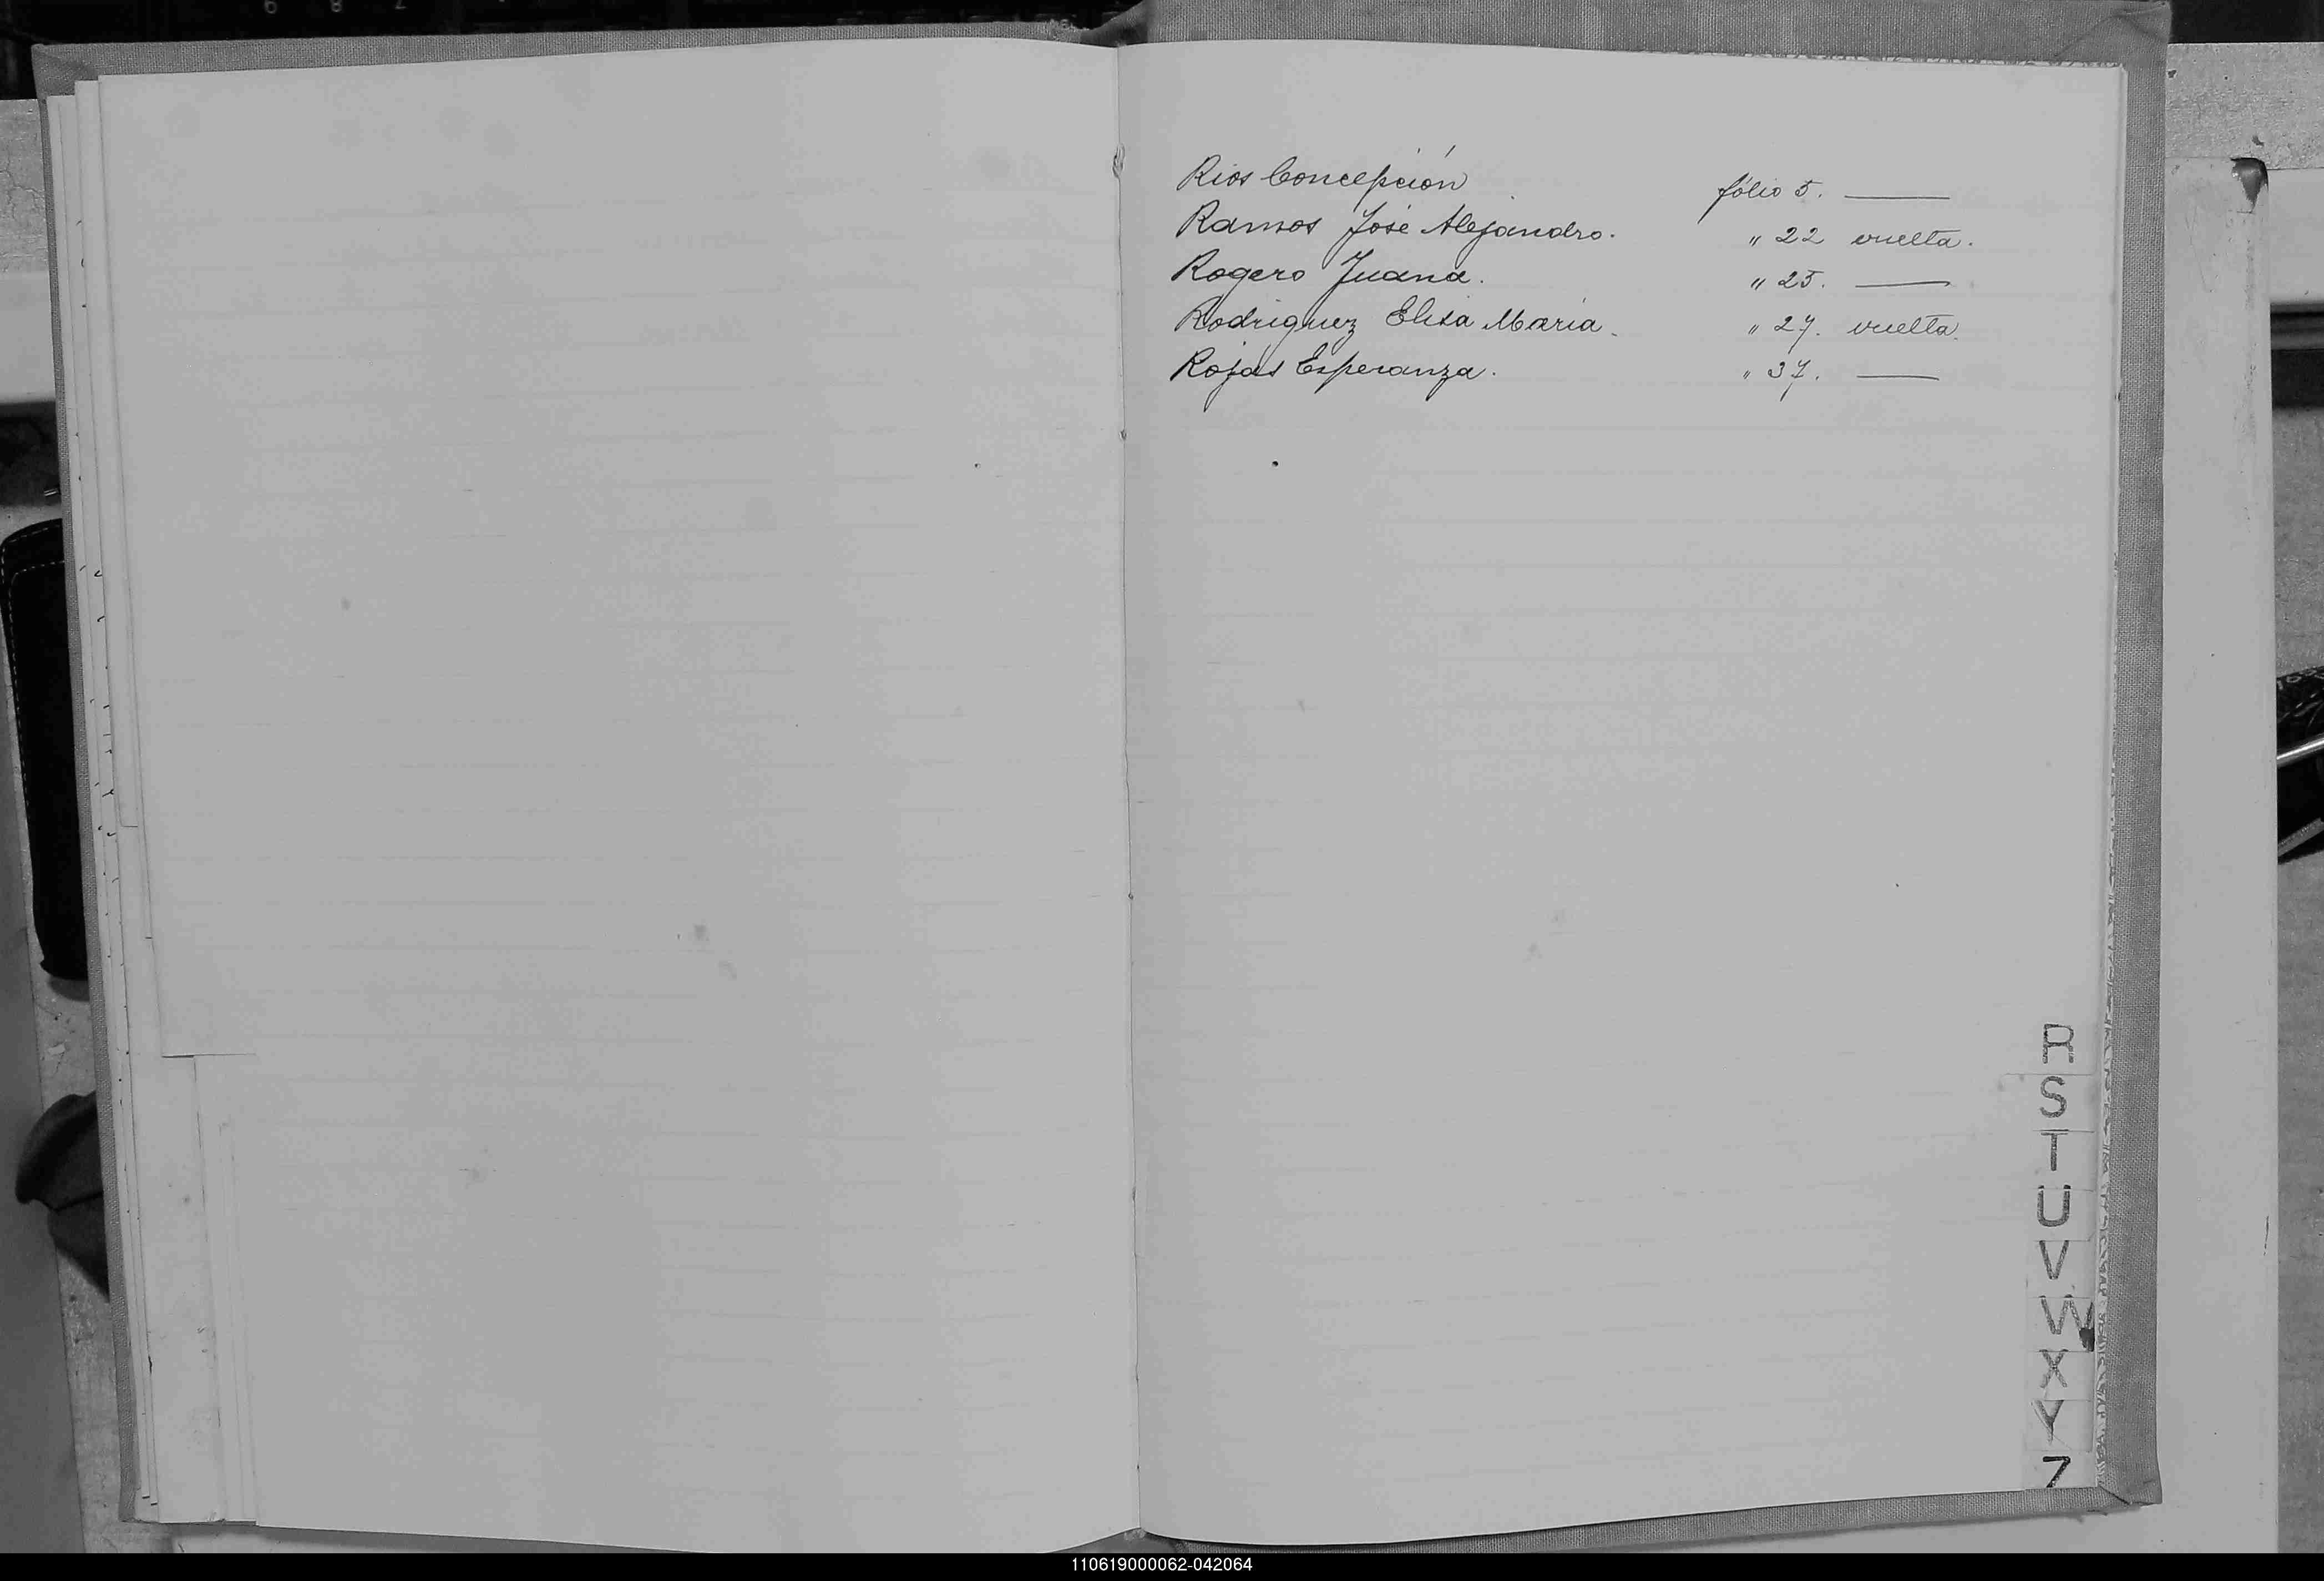 Rios Concepción fólio 5. ——
Ramos José Alejandro. " 22 vuelta.
Rogero Juana. " 25. ——
Rodriguez Elisa María. " 27. vuelta.
Rojas Esperanza. " 37. ——
R
S
T
U
V
W
X
Y
Z
110619000062-042064